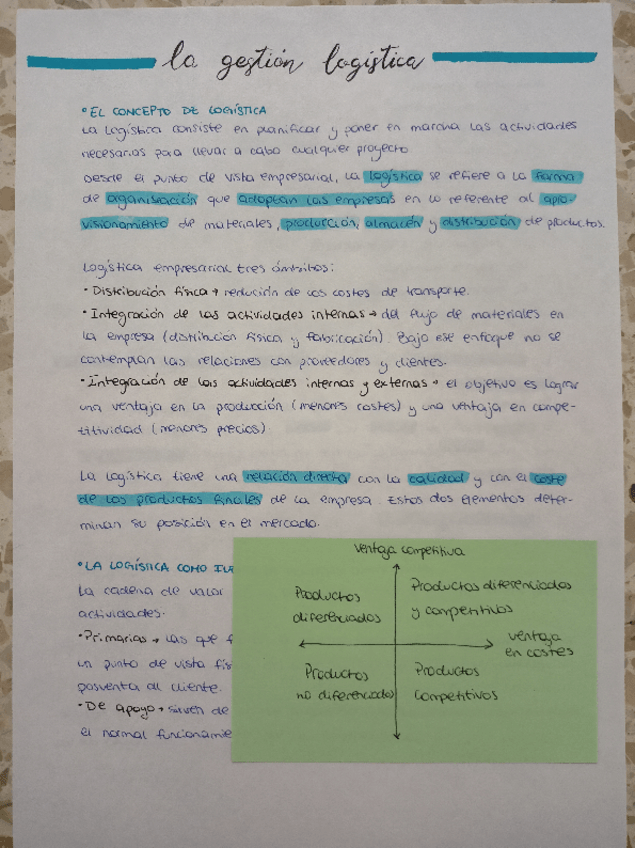 la gestión logística
• EL CONCEPTO DE LOGÍSTICA
La logística consiste en planificar y poner en marcha las actividades
necesarias para llevar a cabo cualquier proyecto
Desde el punto de vista empresarial, la logística se refiere a la forma
de organización que adoptan las empresas en lo referente al apro-
visionamiento de materiales, producción, almacén y distribución de productos.
Logística empresarial tres ámbitos:
• Distribución física → redución de los costes de transporte.
• Integración de las actividades internas → del flujo de materiales en
la empresa (distribución física y fabricación). Bajo ese enfoque no se
contemplan las relaciones con proveedores y clientes.
• Integración de las actividades internas y externas → el objetivo es lograr
una ventaja en la producción (menores costes) y una ventaja en compe-
titividad (menores precios)
La logística tiene una relación directa con la calidad y con el coste
de los productos finales de la empresa. Estos dos elementos deter-
minan su posición en el mercado.
• LA LOGÍSTICA COMO
La cadena de valor
actividades.
• Primarias → las que
un punto de vista
posventa al cliente.
• De apoyo → sirven de
el normal
ventaja competitiva
Productos
diferenciados
Productos diferenciados
y competitivos
ventaja
en costes
Productos
no diferenciado
Productos
competitivos